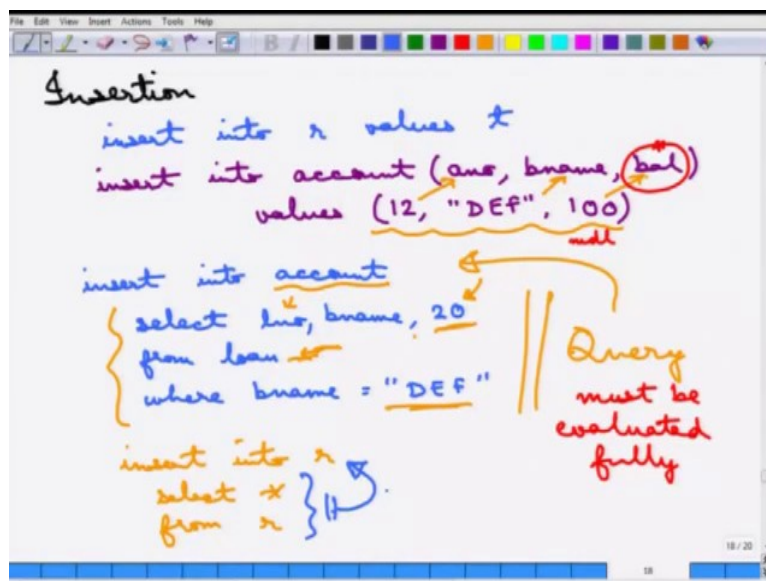 File Edit View Insert Actions Tools Help
B I
Insertion
insert into r values t
insert into account (ano, bname, bal)
values (12, "DEF", 100)
null
insert into account
select lno, bname, 20
from loan
where bname = "DEF"
Query
must be
evaluated
fully
insert into r
select *
from r
18 / 20
18